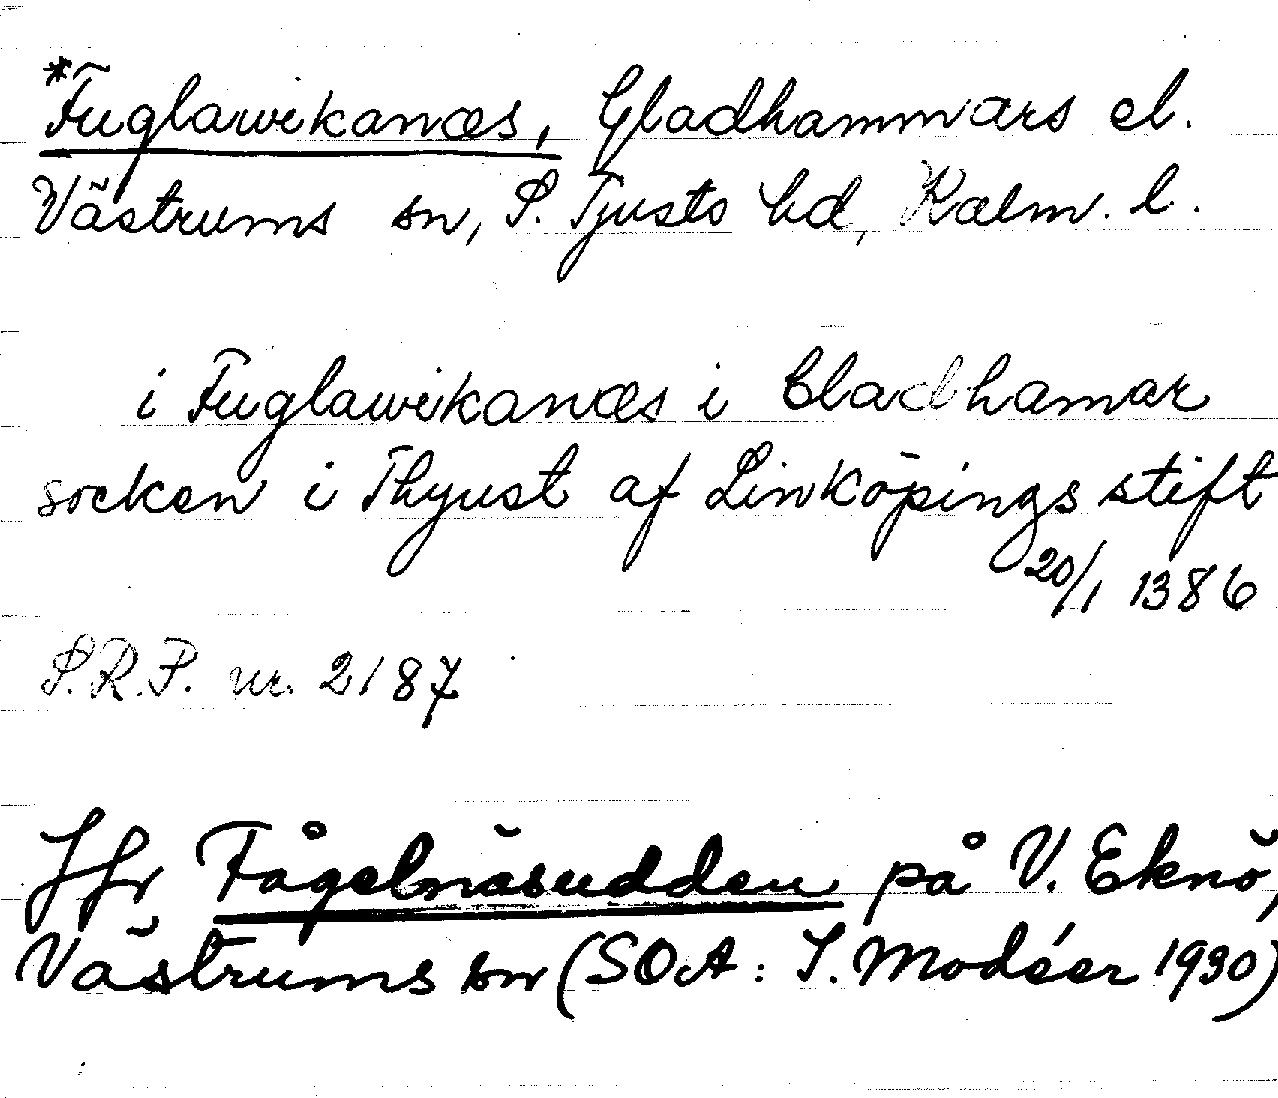 *Fuglawikanæs, Gladhammars el.
Västrums sn, S. Tjusts hd, Kalm. l.
i Fuglawikanæs i Gladhamar
socken i Thyust af Linköpings stift
20/1 1386
S.R.P. nr. 2187
Jfr Fågelnäsudden på V. Eknö,
Västrums sn (SOA: I. Modéer 1930)